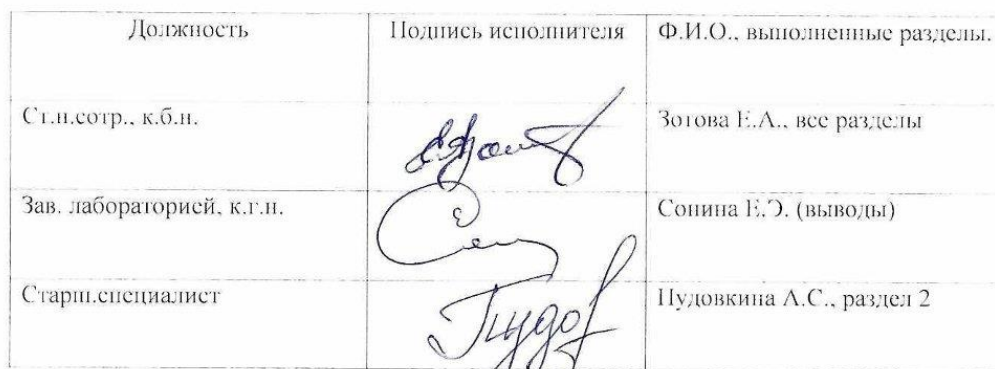 Должность Подпись исполнителя Ф.И.О., выполненные разделы.
Ст.н.сотр., к.б.н. Зотова Е.А., все разделы
Зав. лабораторией, к.г.н. Сонина Е.Э. (выводы)
Старш.специалист Пудовкина А.С., раздел 2